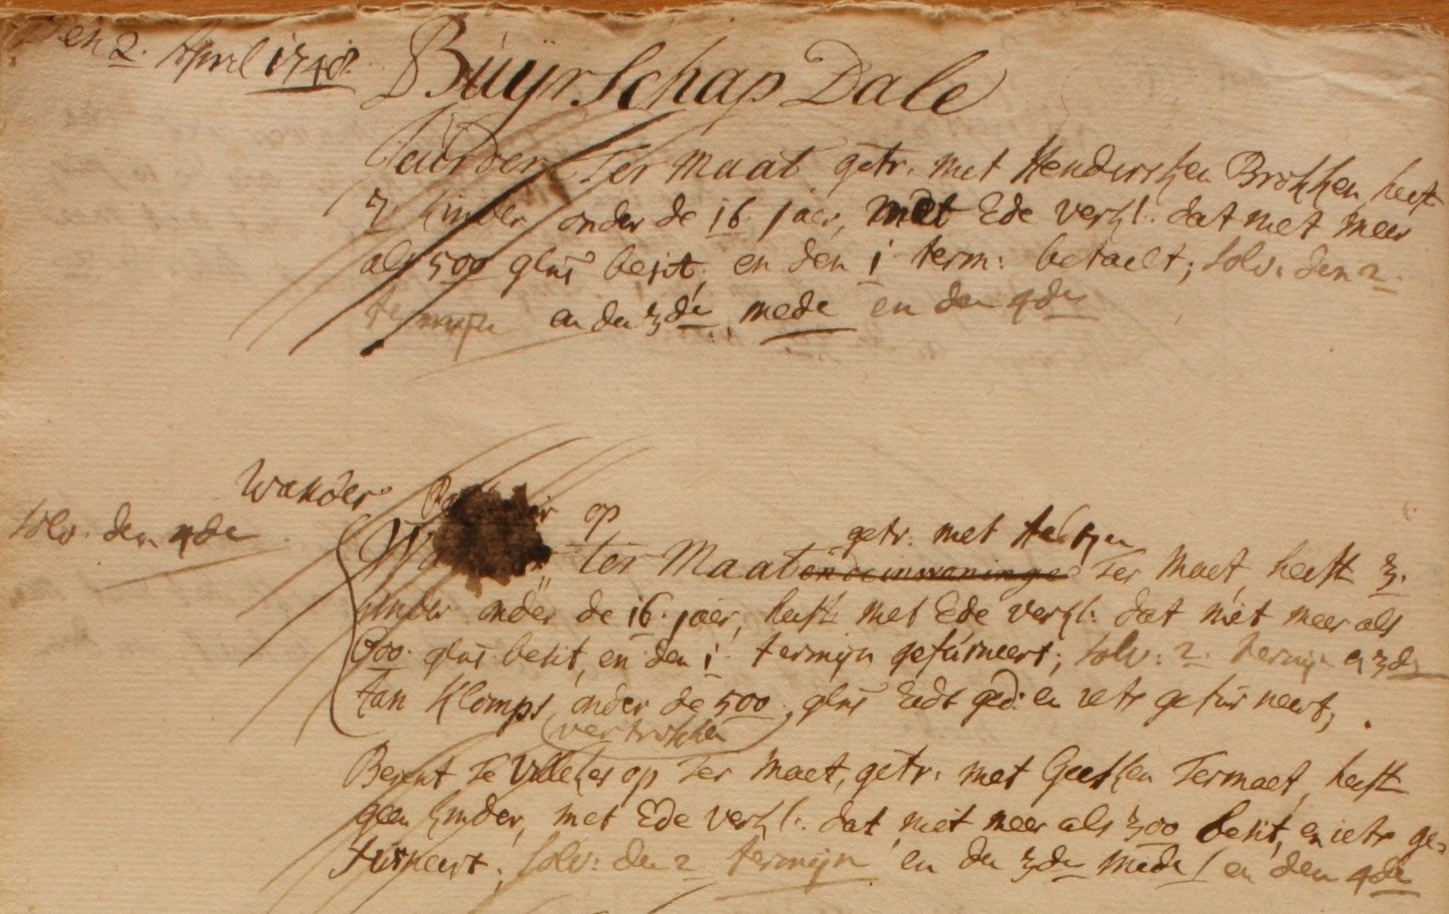 Den 2. April 1748
Buÿrschap Dale
Ter Maat getr. met Henderschen Brokken heeft
3. kinder onder de 16 jaer, met Ede verkl. dat niet meer
als 500 glns besit, en den 1 term: betaelt; solv. den 2.
termijn en den 3de mede en den 4de
Wander
solv. den 4de
op
getr. met
ter Maat Ter Maet heeft 3.
kinder onder de 16. jaer, heeft met Ede verkl. dat niet meer als
500. glns besit, en den 1. termijn gefurneert; solv: 2. termijn en 3de
Jan Klomps onder de 500 glns Eedt ged. en iets gefurneert,
(vertrokken)
Berent Te op Ter Maet, getr. met Geesken Termaet, heeft
geen kinder, met Ede verkl. dat niet meer als 300 besit, en iets ge=
furneert; solv: den 2 termijn en den 3de mede / en den 4de